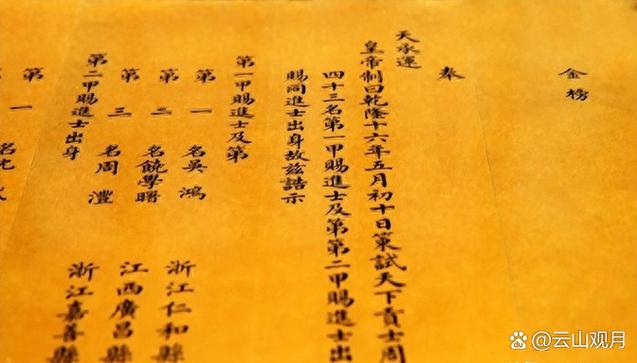 金榜
奉
天承運
皇帝制曰乾隆十六年五月初十日策試天下貢士周
四十三名第一甲賜進士及第第二甲賜進士出
賜同進士出身故兹誥示
第一甲賜進士及第
第一名吳鴻 浙江仁和縣
第二名饒學曙 江西廣昌縣
第三名周灃 浙江嘉善縣
第二甲賜進士出身
第一名沈
第
@云山观月